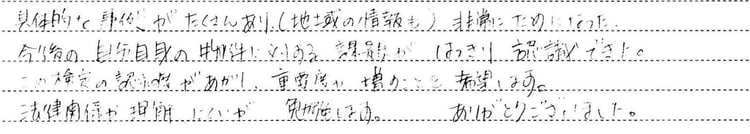 具体的な事例がたくさんあり、(地域の情報も) 非常にためになった。
今後の自分自身の物件に対する課題が はっきり認識できた。
この検定の認知度があがり、重要度が増すことを希望します。
法律関係が理解しにくいが 勉強します。 ありがとうございました。